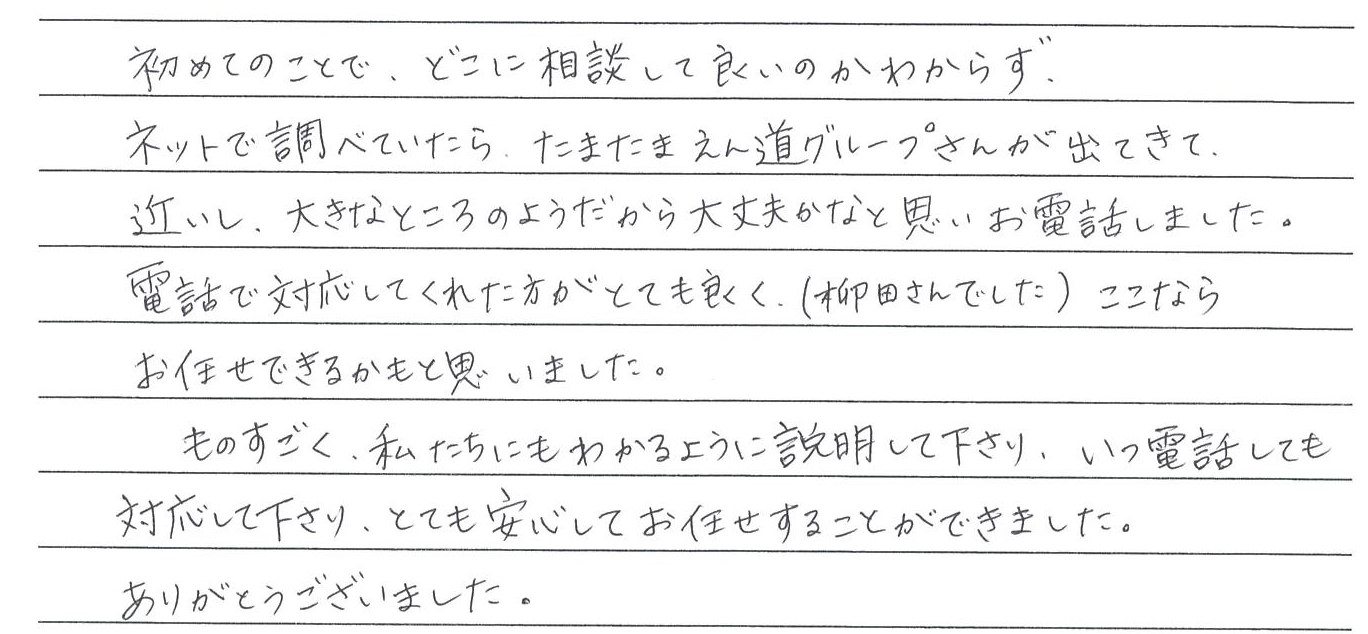 初めてのことで、どこに相談して良いのかわからず、
ネットで調べていたら、たまたまえん道グループさんが出てきて、
近いし、大きなところのようだから大丈夫かなと思いお電話しました。
電話で対応してくれた方がとても良く、(柳田さんでした) ここなら
お任せできるかもと思いました。
ものすごく、私たちにもわかるように説明して下さり、いつ電話しても
対応して下さり、とても安心してお任せすることができました。
ありがとうございました。